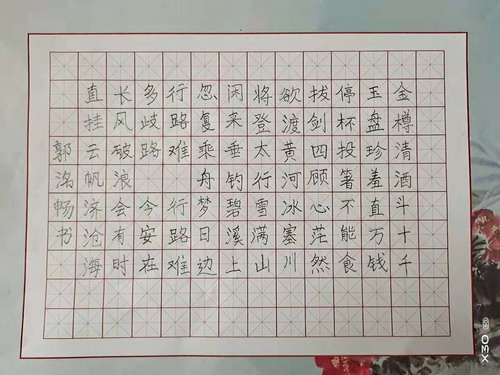 金樽清酒斗十千
玉盘珍羞直万钱
停杯投箸不能食
拔剑四顾心茫然
欲渡黄河冰塞川
将登太行雪满山
闲来垂钓碧溪上
忽复乘舟梦日边
行路难 行路难
多歧路 今安在
长风破浪会有时
直挂云帆济沧海
郭洺畅书
X30